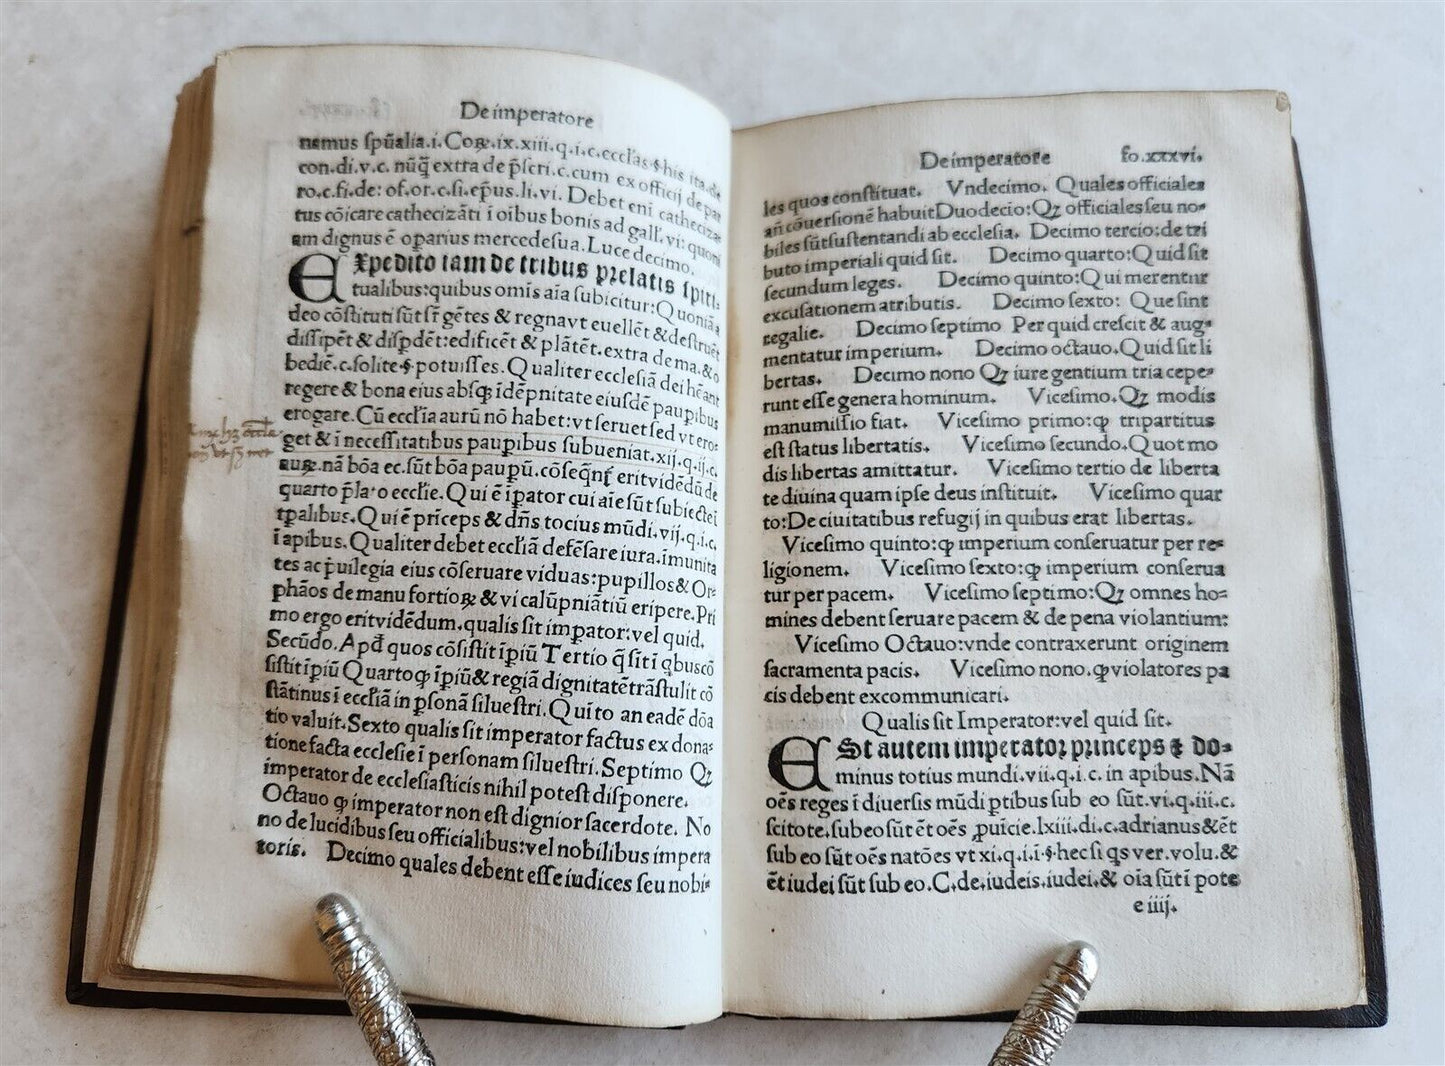 De imperatore
nemus spũalia.i.Coꝝ.ix.xiii.q.i.c.eccl'as.§.his ita.de
con.di.v.c. nũq̃ extra de p̃scri.c.cum ex officij de par
ro.c.fi.de: of.or.c.si.ep̃us.li.vi. Debet eni cathecizaz
tus cõicare cathecizãti ĩ oĩbus bonis ad gall'.vi: quoni
am dignus ẽ oparius mercede sua. Luce decimo.
EXpedito iam de tribus prelatis spiri-
tualibus:quibus omĩs aĩa subicitur: Quoniã a
deo cõstituti sũt sr̃ gẽtes & regna vt euellẽt & destruẽt
dissipẽt & disp̱dẽt:edificẽt & plãtẽt. extra de ma.& o
bediẽ.c.solite.§.potuisses. Qualiter ecclesiã dei hẽant
regere & bona eius absqꝫ ĩdẽpnitate eiusdẽ paupibus
erogare. Cũ eccl'ia aurũ nõ habet:vt seruet sed vt ero-
get & ĩ necessitatibus paup̱ibus subueniat.xij.q.ij.c.
auꝝ. nã bõa ec. sũt bõa paupũ. cõseq̃nt̃ erit vidẽdũ de
quarto p̃lato eccl'ie. Qui ẽ ĩp̱ator cui aĩe sũt subiectei
tp̱alibus. Qui ẽ prĩceps & dñs tocius mũdi.vij.q.i.c.
ĩ apibus. Qualiter debet eccl'iã defẽsare iura.ĩmunita
tes ac p̃uilegia eius cõseruare viduas:pupillos & Or-
phãos de manu fortioꝝ & vi calũpniãtiũ eripere. Pri
mo ergo erit vidẽdum. qualis sit imp̱ator:vel quid.
Secũdo. Apd̃ quos cõsistit ĩp̱iũ Tertio q̃ sit ĩ qbus cõ
sistit ĩp̱iũ Quarto ꝙ ĩp̱iũ & regiã dignitatẽ trãstulit cõ
stãtinus ĩ eccl'iã in p̱sonã siluestri. Quĩto an eadẽ dõa
tio valuit. Sexto qualis sit imperator factus ex dona-
tione facta ecclesie ĩ personam siluestri. Septimo Qꝫ
imperator de ecclesiasticis nihil potest disponere.
Octauo ꝙ imperator non est dignior sacerdote. No
no de lucidibus seu officialibus:vel nobilibus impera
toris. Decimo quales debent esse iudices seu nobi-
De imperatore fo.xxxvi.
les quos constituat. Vndecimo. Quales officiales
añ cõuersionẽ habuit Duodecio: Qꝫ officiales seu no-
biles sũt sustentandi ab ecclesia. Decimo tercio: de tri
buto imperiali quid sit. Decimo quarto: Quid sit
secundum leges. Decimo quinto: Qui merentur
excusationem a tributis. Decimo sexto: Que sint
regalie. Decimo septimo Per quid crescit & aug-
mentatur imperium. Decimo octauo. Quid sit li
bertas. Decimo nono Qꝫ iure gentium tria cepe-
runt esse genera hominum. Vicesimo. Qꝫ modis
manumissio fiat. Vicesimo primo: ꝙ tripartitus
est status libertatis. Vicesimo secundo. Quot mo
dis libertas amittatur. Vicesimo tertio de liberta
te diuina quam ipse deus instituit. Vicesimo quar
to: De ciuitatibus refugij in quibus erat libertas.
Vicesimo quinto: ꝙ imperium conseruatur per re-
ligionem. Vicesimo sexto: ꝙ imperium conserua
tur per pacem. Vicesimo septimo: Qꝫ omnes ho-
mines debent seruare pacem & de pena violantium:
Vicesimo Octauo: vnde contraxerunt originem
sacramenta pacis. Vicesimo nono. ꝙ violatores pa
cis debent excommunicari.
Qualis sit Imperator: vel quid sit.
ESt autem imperator princeps & do-
minus totius mundi.vii.q.i.c. in apibus. Nã
oẽs reges ĩ diuersis mũdi ptibus sub eo sũt.vi.q.iii.c.
scitote. sub eo sũt ẽt oẽs puĩcie.lxiii.di.c.adrianus & ẽt
sub eo sũt oẽs natões vt xi.q.i.ĩ.§.hec si qs ver.volu.&
ẽt iudei sũt sub eo. C.de.iudeis.iudei.& oĩa sũt ĩ pote
e iiij.